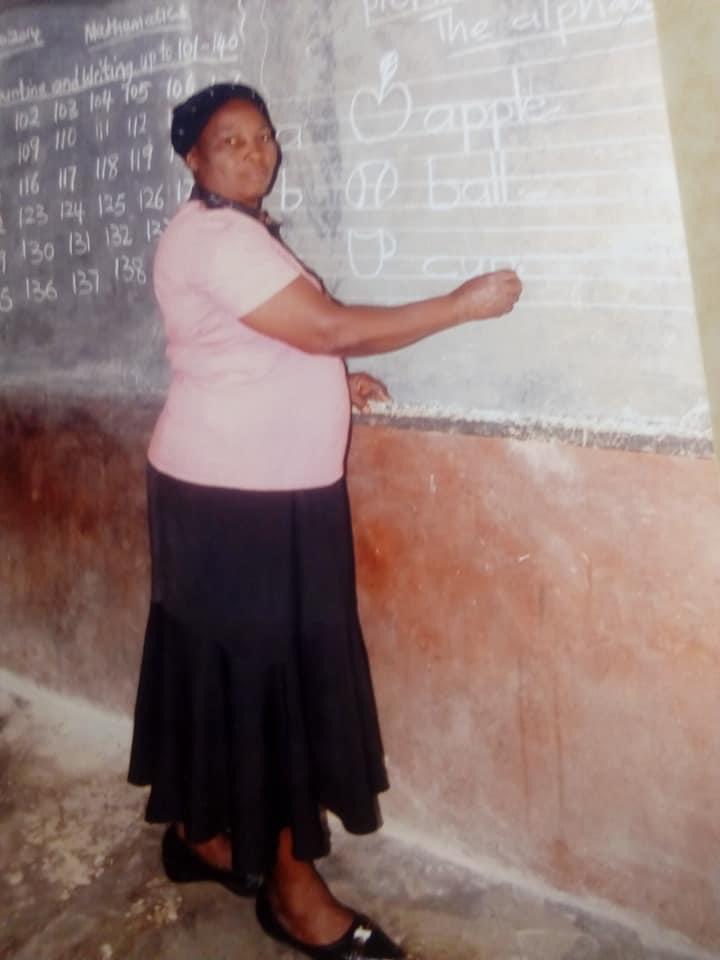 Mathematics
and Writing up to 101-140
102 103 104 105 106
109 110 111 112
116 117 118 119
123 124 125 126
130 131 132
136 137 138
The
a apple
b ball
cup